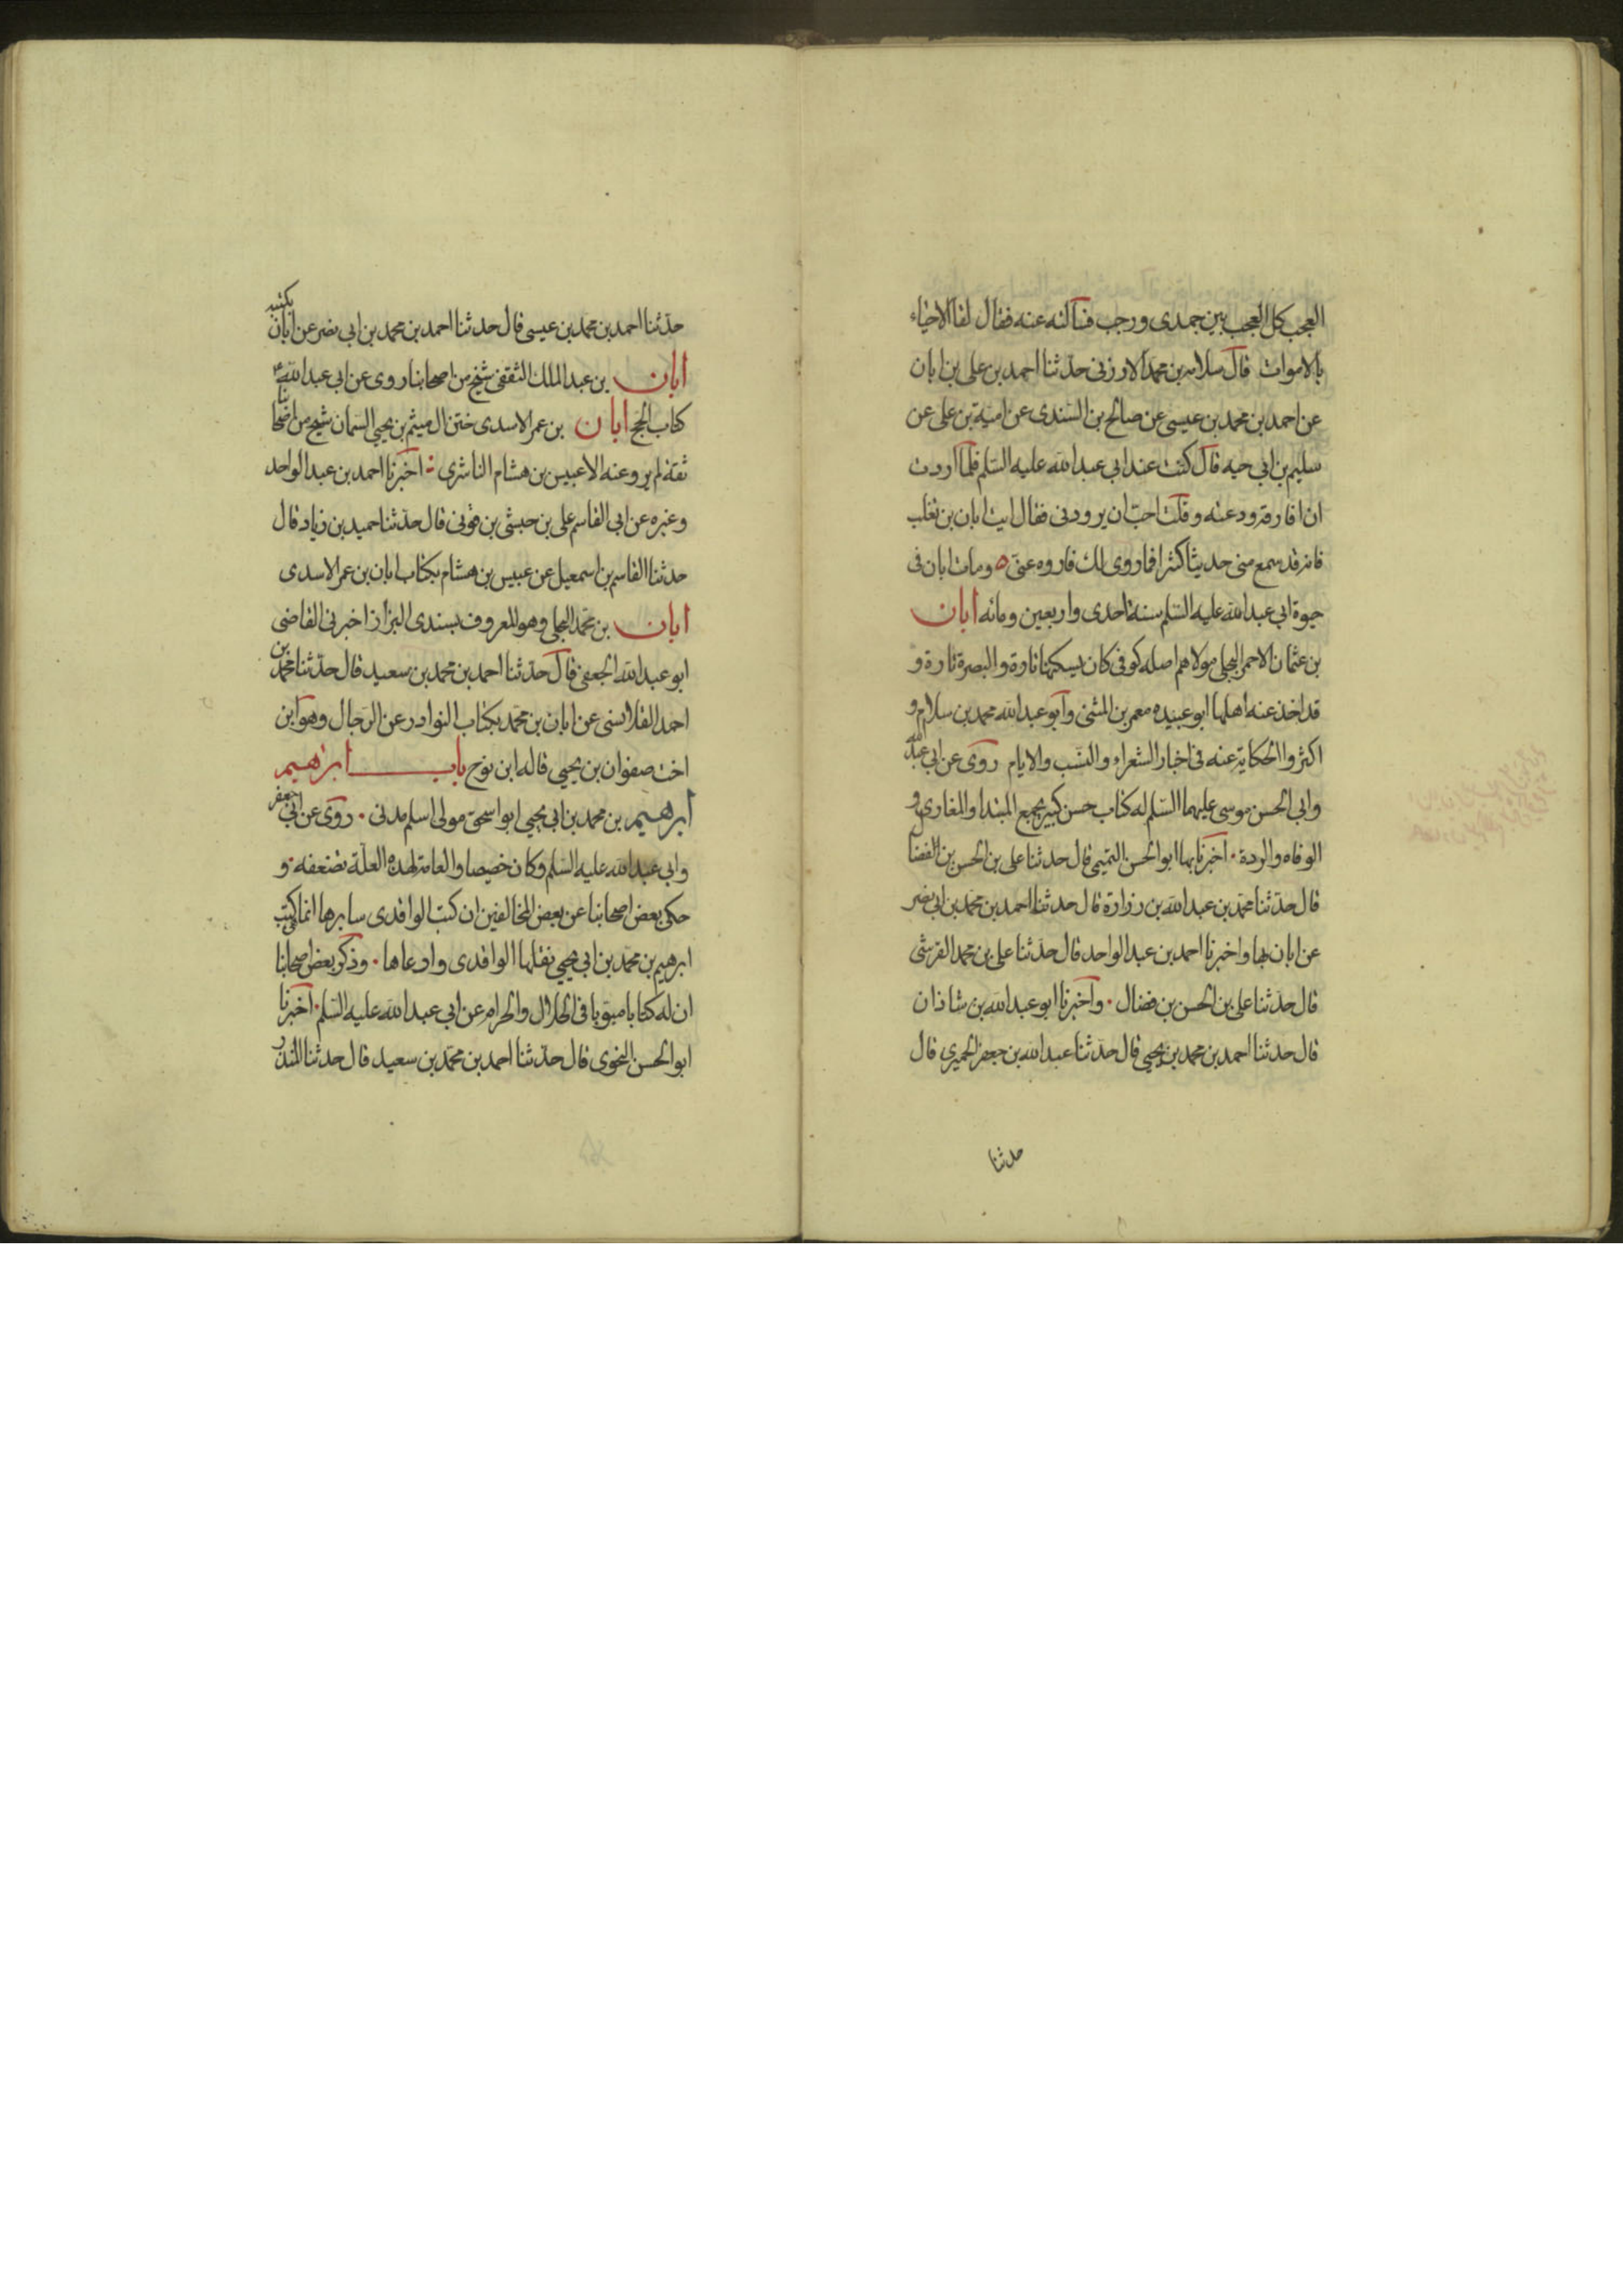 العجب كل العجب بين جمدى ورجب فسألته عنه فقال لقا الاحياء
بالاموات قال سلامه بن محمد الارزنى حدثنا احمد بن على بن ابان
عن احمد بن محمد بن عيسى عن صالح بن السندى عن امية بن على عن
سليم بن ابى حيه قال كنت عند ابى عبد الله عليه السلم فلما اردت
ان افارقه ودعته وقلت احب ان يرودنى فقال ايت ابان بن تغلب
فانه قد سمع منى حديثا كثيرا فما روى لك فاروه عنى ومات ابان فى
حيوة ابى عبد الله عليه السلم سنة احدى واربعين ومائه ابان
بن عثمان الاحمر البجلى مولاهم اصله كوفى كان يسكنها تارة والبصرة تارة و
قد اخذ عنه اهلها ابو عبيده معمر بن المثنى وابو عبد الله محمد بن سلام و
اكثروا الحكاية عنه فى اخبار الشعراء والنسب والايام روى عن ابى عبد الله
وابى الحسن موسى عليهما السلم له كتاب حسن كبير يجمع المبتدا والمغازى و
الوفاه والردة اخبرنا بها ابو الحسن التميمى قال حدثنا على بن الحسن بن الفضال
قال حدثنا محمد بن عبد الله بن زرارة قال حدثنا احمد بن محمد بن ابى نصر
عن ابان بها واخبرنا احمد بن عبد الواحد قال حدثنا على بن محمد القرشى
قال حدثنا على بن الحسن بن فضال واخبرنا ابو عبد الله بن شاذان
قال حدثنا احمد بن محمد بن يحيى قال حدثنا عبد الله بن جعفر الحميرى قال
حدثنا
حدثنا احمد بن محمد بن عيسى قال حدثنا احمد بن محمد بن ابى نصر عن ابان بكتبه
ابان بن عبد الملك الثقفى شيخ من اصحابنا روى عن ابى عبد الله ع
كتاب الحج ابان بن عمر الاسدى ختن ال ميثم بن يحيى السمان شيخ من اصحابنا
ثقة لم يرو عنه الا عبيس بن هشام الناشرى اخبرنا احمد بن عبد الواحد
وغيره عن ابى القاسم على بن حبشى بن قونى قال حدثنا حميد بن زياد قال
حدثنا القاسم بن اسمعيل عن عبيس بن هشام بكتاب ابان بن عمر الاسدى
ابان بن محمد البجلى وهو المعروف بسندى البزاز اخبرنى القاضى
ابو عبد الله الجعفى قال حدثنا احمد بن محمد بن سعيد قال حدثنا محمد بن
احمد القلانسى عن ابان بن محمد بكتاب النوادر عن الرجال وهو ابن
اخت صفوان بن يحيى قاله ابن نوح باب ابرهيم
ابرهيم بن محمد بن ابى يحيى ابو اسحق مولى اسلم مدنى روى عن ابى جعفر
وابى عبد الله عليه السلم وكان خصيصا والعامة لهذه العلة تضعفه و
حكى بعض اصحابنا عن بعض المخالفين ان كتب الواقدى سايرها انما كتب
ابرهيم بن محمد بن ابى يحيى نقلها الواقدى وادعاها وذكر بعض اصحابنا
ان له كتابا مبوبا فى الحلال والحرام عن ابى عبد الله عليه السلم اخبرنا
ابو الحسن النحوى قال حدثنا احمد بن محمد بن سعيد قال حدثنا المنذر